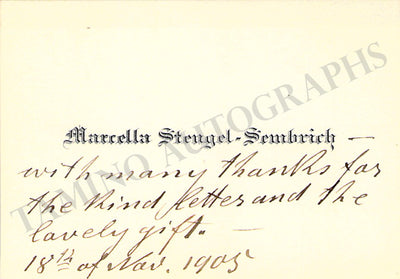 Marcella Stengel-Sembrich —
with many thanks for
the kind letter and the
lovely gift. —
18th of Nov. 1905
TAMINO AUTOGRAPHS